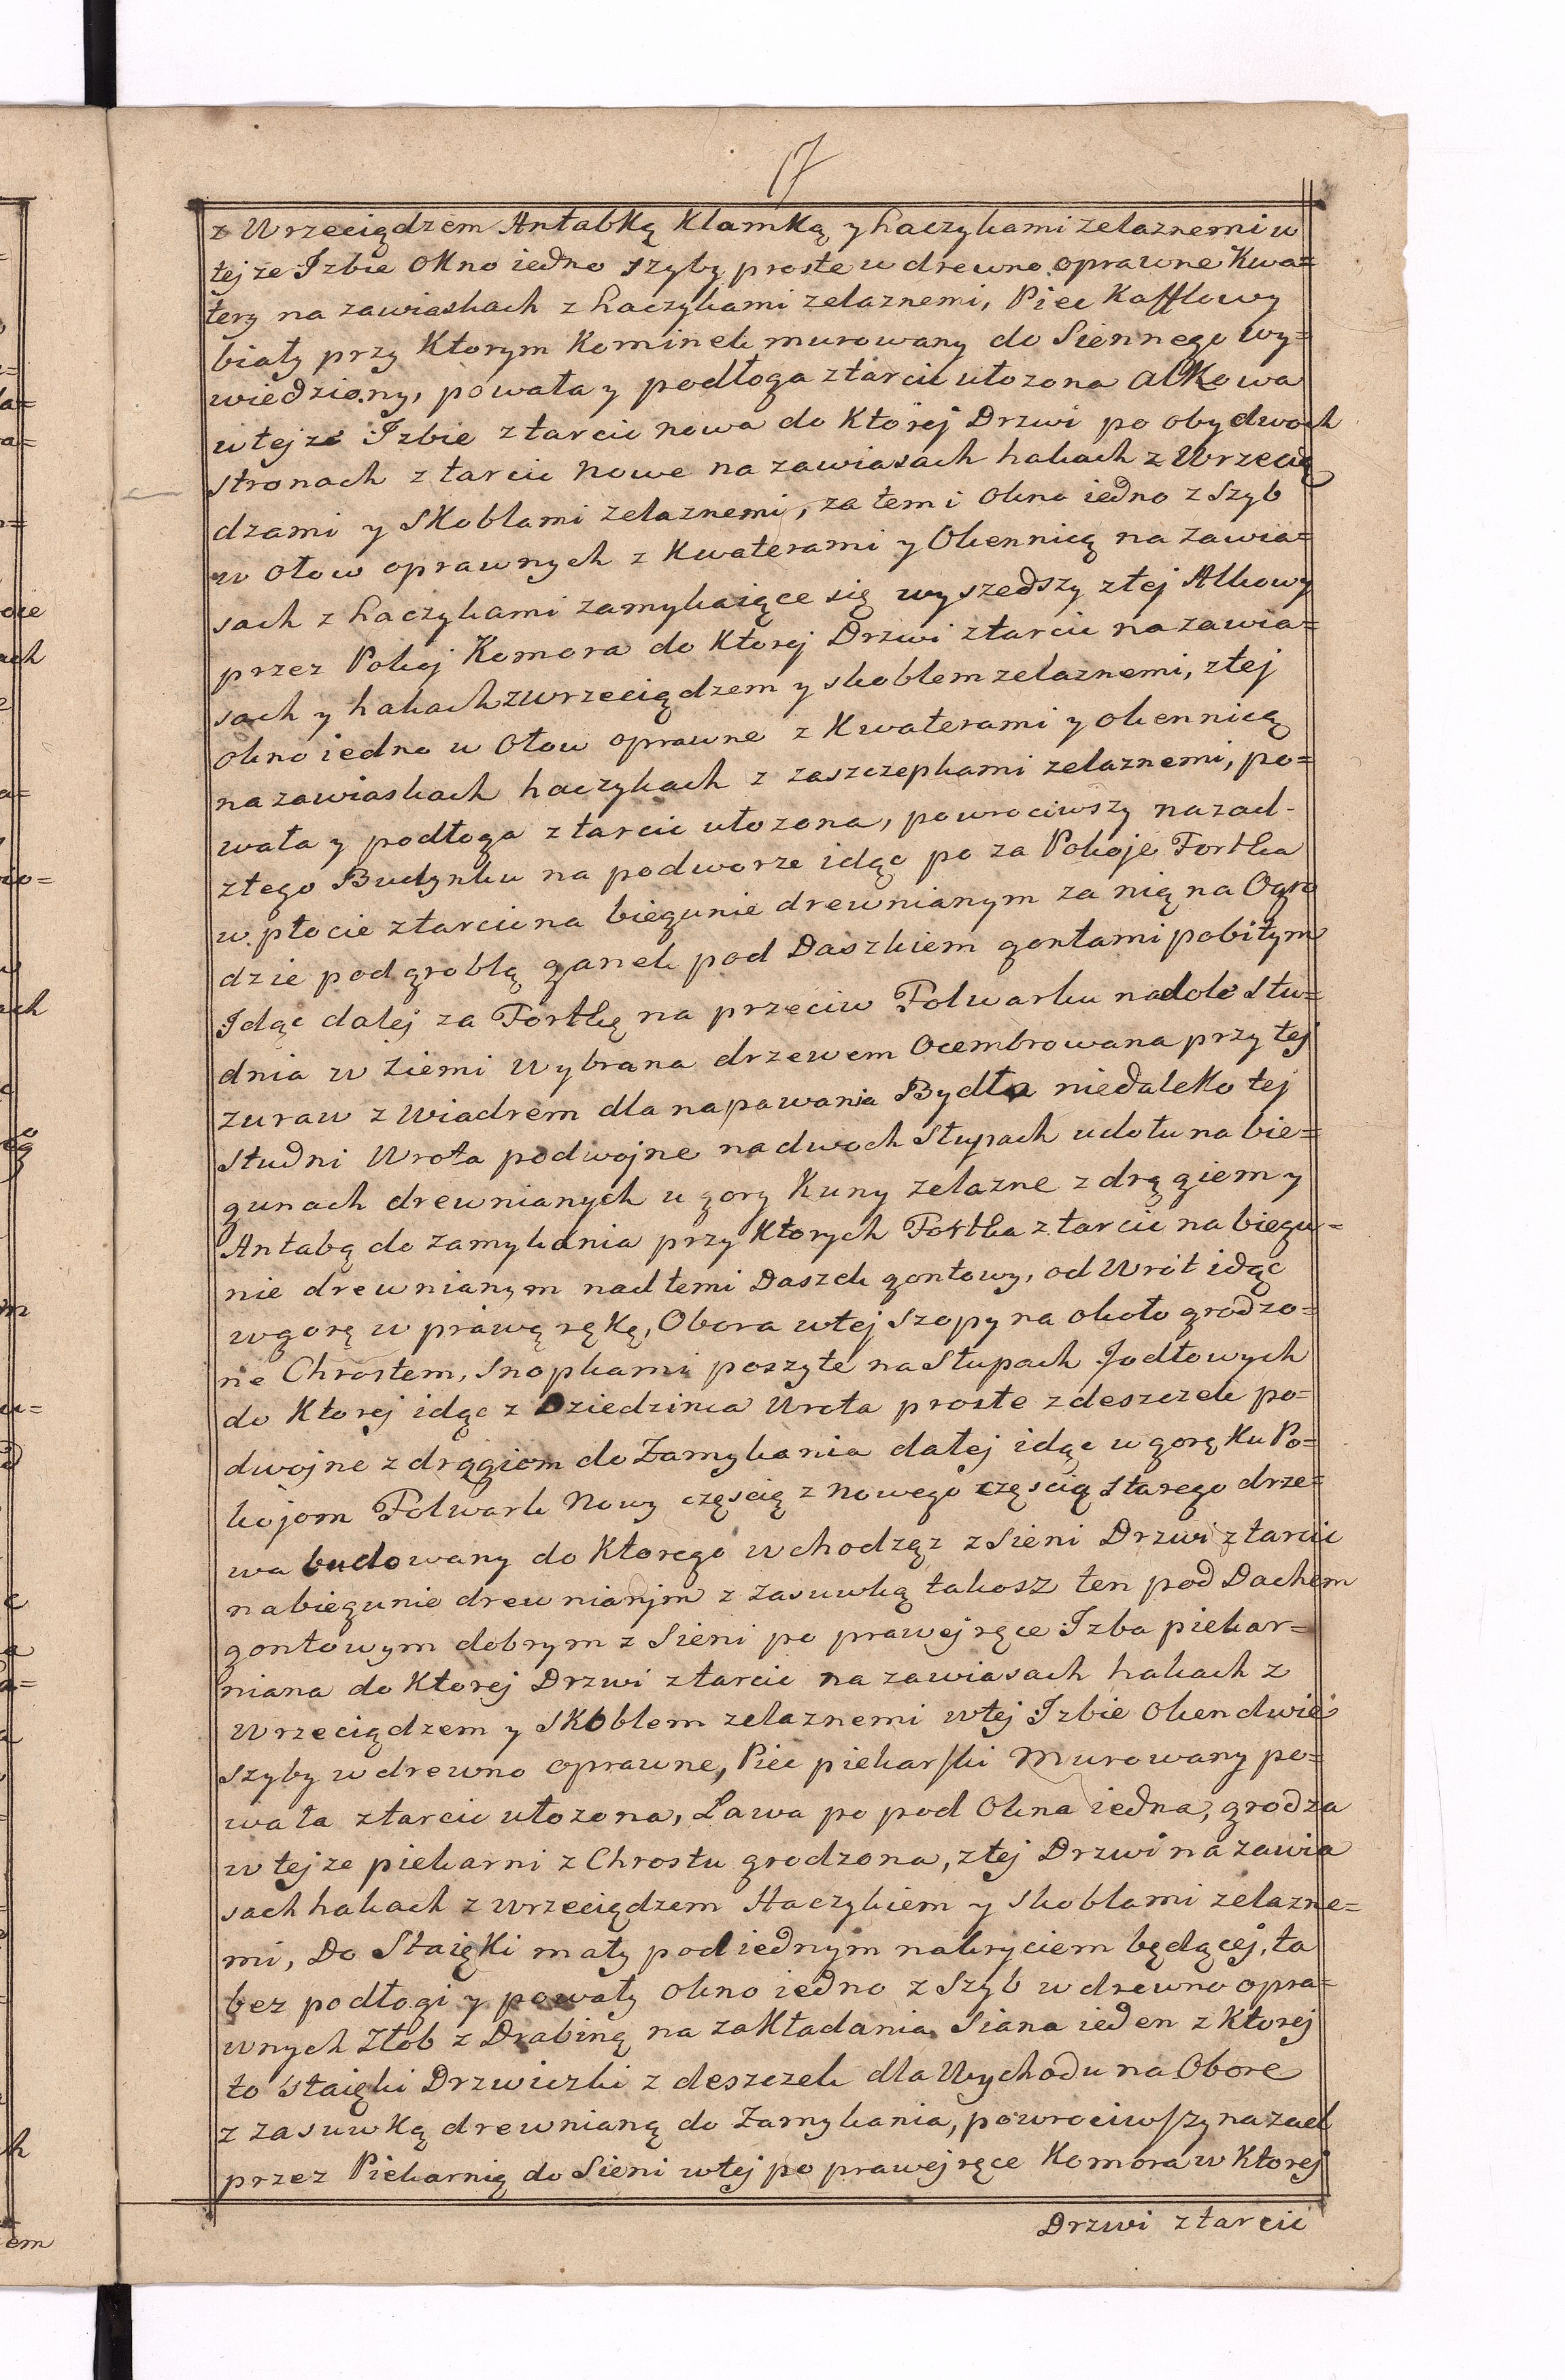 17
z Wrzeciądzem Antabką Klamką y haczykami zelaznemi w
tejze Izbie Okno iedno szyby proste w drewno oprawne Kwa=
tery na zawiaskach z haczykami zelaznemi, Piec Kafflowy
biały przy Ktorym Kominek murowany do Siennego wy=
wiedziony, powała y podłoga z tarcic ułozona alkowa
w tejze Izbie z tarcic nowa do Ktorej Drzwi po obydwoch
stronach z tarcic nowe na zawiasach hakach z Wrzecią
dzami y Skoblami zelaznemi, za temi Okno iedno z Szyb
w ołow oprawnych z Kwaterami y Okennicą na zawia=
sach z haczykami zamykaiące się wyszedszy z tej Alkowy
przez Pokoj Komora do Ktorej Drzwi z tarcic na zawia=
sach y hakach z wrzeciądzem y skoblem zelaznemi, z tej
okno iedno w Ołow oprawne z Kwaterami y okennicą
na zawiaskach haczykach z zaszczepkami zelaznemi, po=
wała y podłoga z tarcic ułozona, powrociwszy nazad
z tego Budynku na podworze idąc po za Pokoje Fortka
w płocie z tarcic na biegunie drewnianym za nią na Ogro
dzie pod groblą ganek pod Daszkiem gontami pobitym
Idąc dalej za Fortką na przeciw Folwarku na dole Stu=
dnia w Ziemi Wybrana drzewem Ocembrowana przy tej
zuraw z Wiadrem dla napawania Bydła niedaleko tej
Studni Wrota podwojne na dwoch Słupach u dołu na bie=
gunach drewnianych u gory Kuny zelazne z drągiem y
Antabą do zamykania przy Ktorych Fortka z tarcic na biegu=
nie drewnianym nad temi Daszek gontowy, od Wrot idąc
w gorę w prawą rękę, Obora w tej Szopy na około grodzo=
ne Chrostem, Snopkami poszyte na Słupach Jodłowych
do Ktorej idąc z Dziedzinca Wrota proste z deszczek po=
dwojne z drągiem do Zamykania dalej idąc w gorę Ku Po=
kojom Folwark Nowy częscią z Nowego częscią starego drze=
wa budowany do Ktorego wchodząz z Sieni Drzwi z tarcic
na biegunie drewnianym z zasuwką takosz ten pod Dachem
gontowym dobrym z Sieni po prawej ręce Izba piekar=
niana do Ktorej Drzwi z tarcic na zawiasach hakach z
Wrzeciądzem y Skoblem zelaznemi w tej Izbie Oken dwie
szyby w drewno oprawne, Piec piekarski Murowany po=
wała z tarcic ułozona, Ława po pod Okna iedna, grodza
w tejze piekarni z Chrostu grodzona, z tej Drzwi na zawia
sach hakach z wrzeciądzem Haczykiem y skoblami zelazne=
mi, Do Staięki mały pod iednym nakryciem będącej, ta
bez podłogi y powały okno iedno z Szyb w drewno opra=
wnych Złob z Drabiną na zakładania Siana ieden z Ktorej
to staięki Drzwiczki z deszczek dla Wychodu na Obore
z zasuwką drewnianą do Zamykania, powrociwszy nazad
przez Piekarnią do Sieni w tej po prawej ręce Komora w Ktorej
Drzwi z tarcic